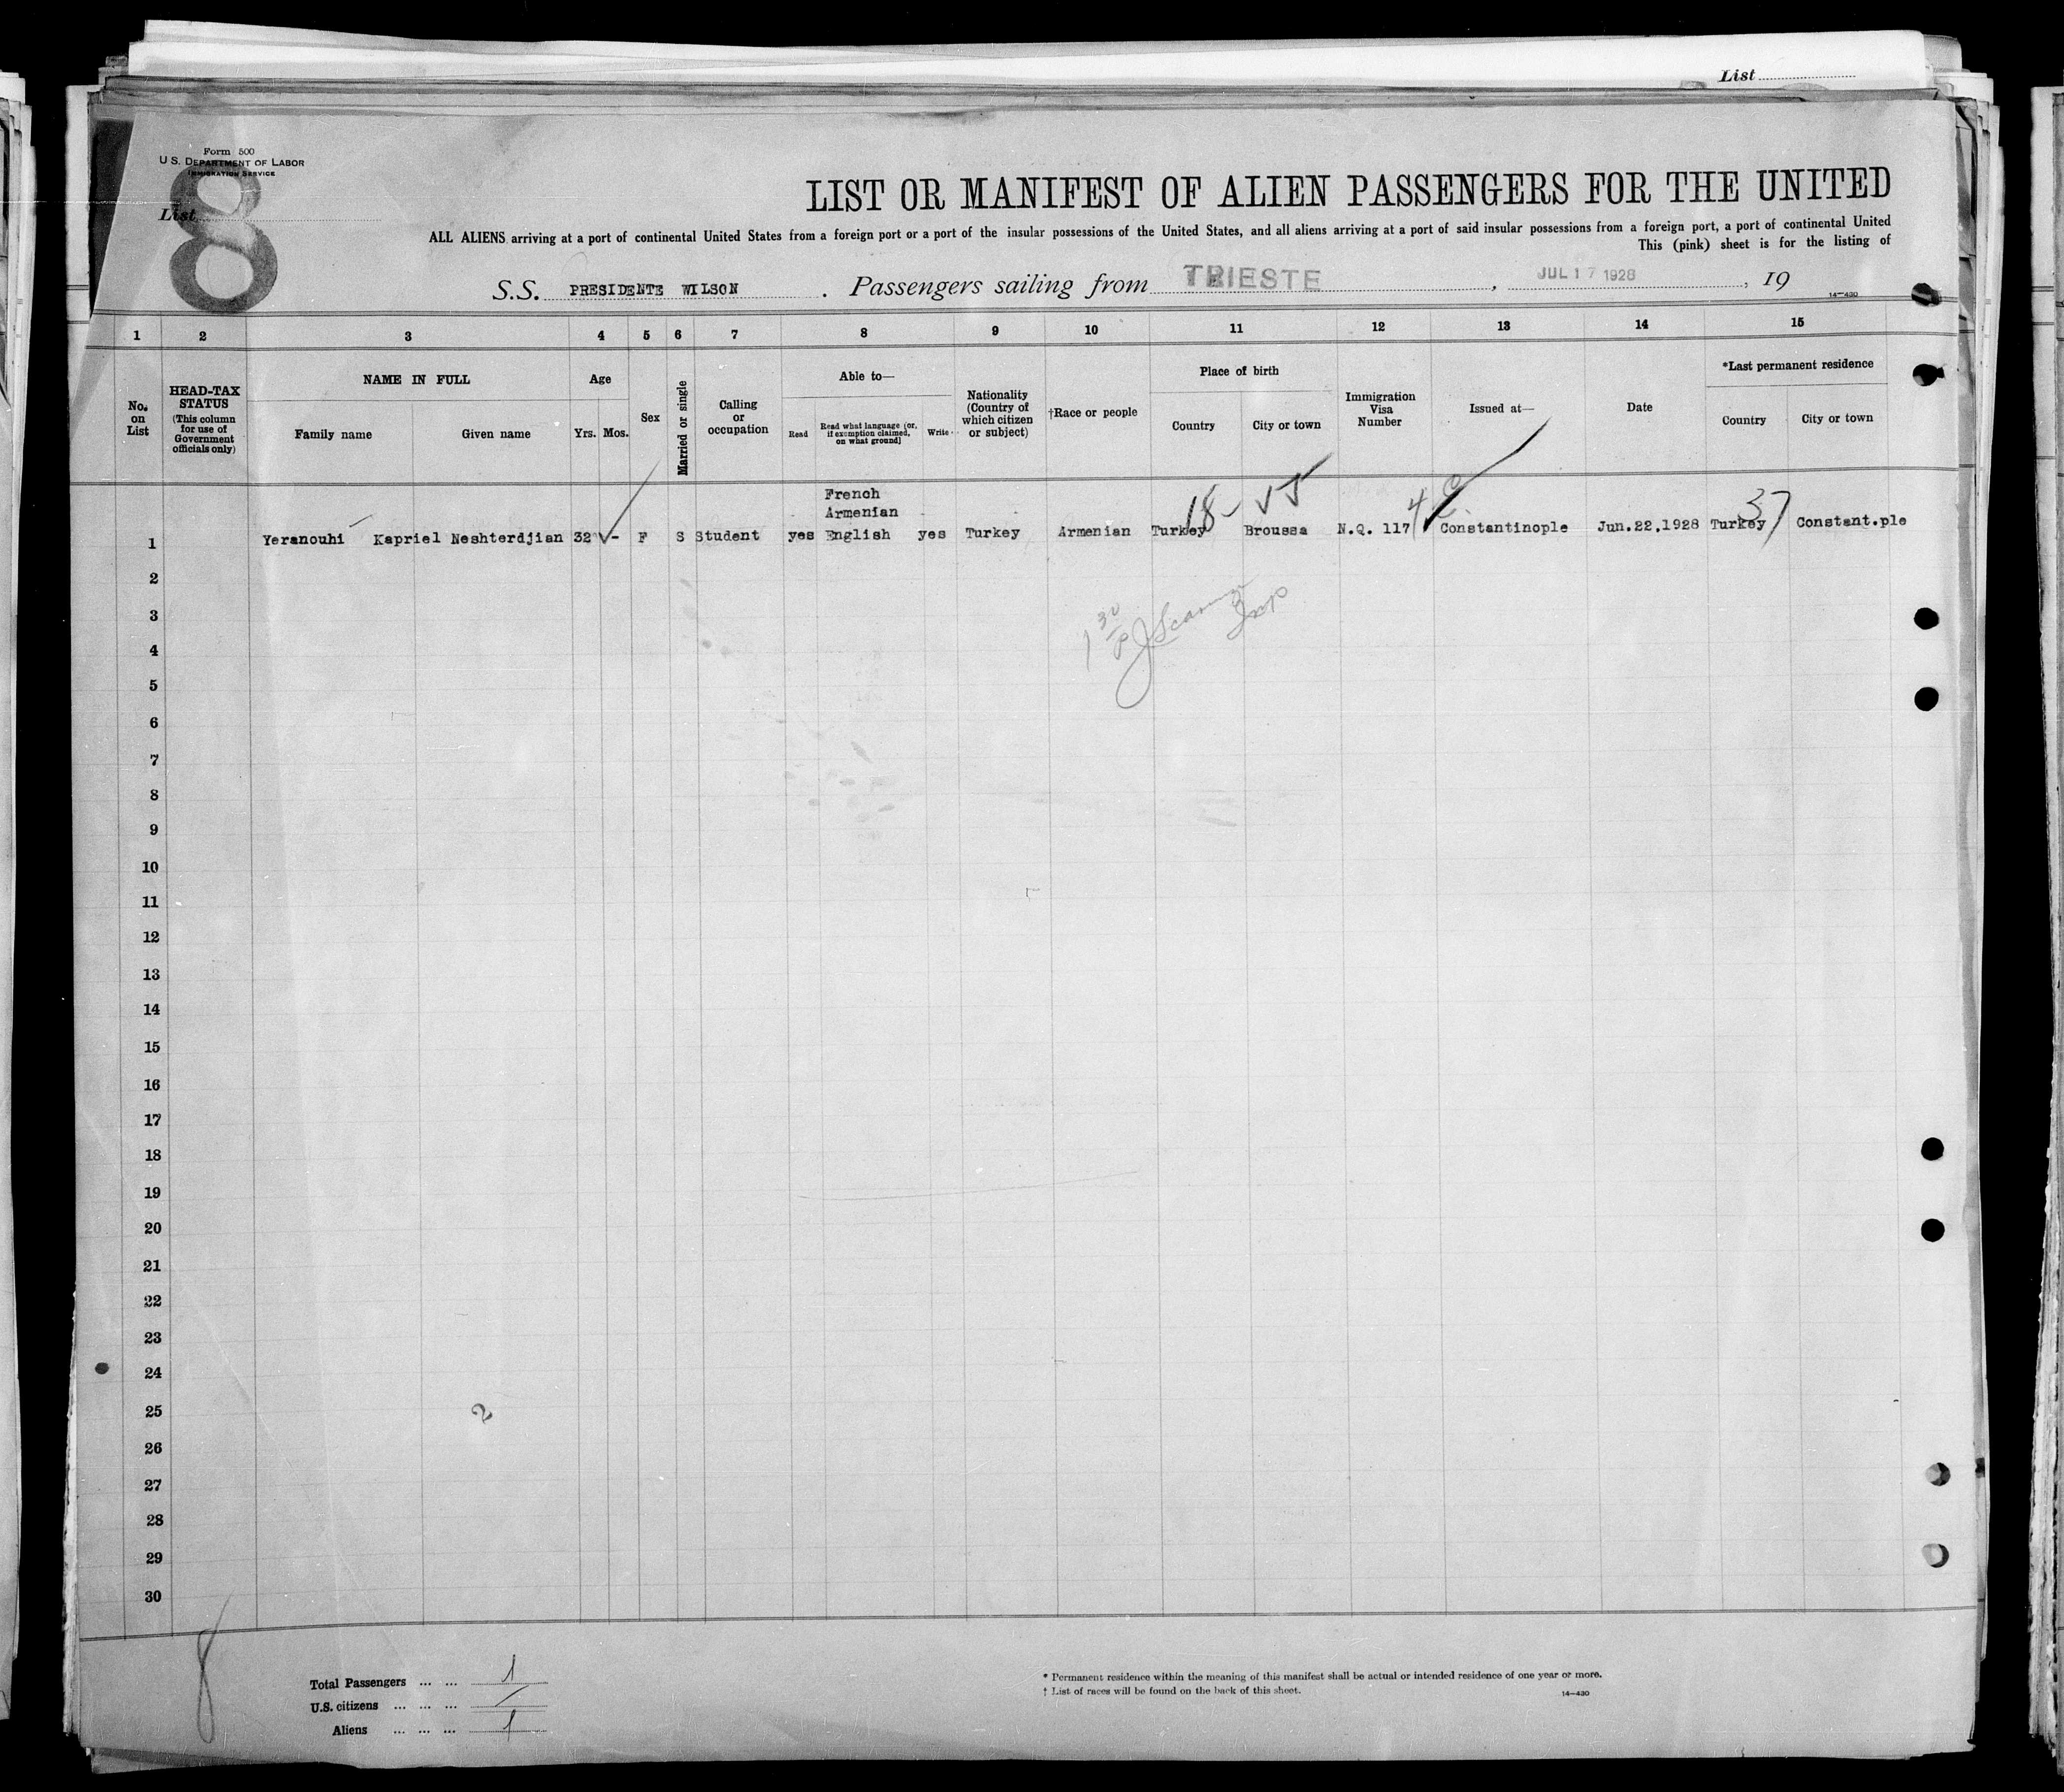 List
Form 500
U.S. DEPARTMENT OF LABOR
IMMIGRATION SERVICE
List
8
LIST OR MANIFEST OF ALIEN PASSENGERS FOR THE UNITED
ALL ALIENS arriving at a port of continental United States from a foreign port or a port of the insular possessions of the United States, and all aliens arriving at a port of said insular possessions from a foreign port, a port of continental United
This (pink) sheet is for the listing of
S.S. PRESIDENTE WILSON . Passengers sailing from TRIESTE , JUL 17 1928 , 19
14—430
1 2 3 4 5 6 7 8 9 10 11 12 13 14 15
No. on List
HEAD-TAX STATUS
(This column for use of Government officials only)
NAME IN FULL
Family name Given name
Age
Yrs. Mos.
Sex
Married or single
Calling or occupation
Able to—
Read
Read what language (or, if exemption claimed, on what ground)
Write
Nationality (Country of which citizen or subject)
†Race or people
Place of birth
Country City or town
Immigration Visa Number
Issued at—
Date
*Last permanent residence
Country City or town
French
Armenian
1 Yeranouhi Kapriel Neshterdjian 32 - F S Student yes English yes Turkey Armenian Turkey Broussa N.Q. 117 Constantinople Jun.22,1928 Turkey Constant.ple
18- 4 37
2
3
4
5
6
7
8
9
10
11
12
13
14
15
16
17
18
19
20
21
22
23
24
25
2
26
27
28
29
30
8
Total Passengers ... ... 1
U.S. citizens ... ... ... /
Aliens ... ... ... 1
* Permanent residence within the meaning of this manifest shall be actual or intended residence of one year or more.
† List of races will be found on the back of this sheet.
14—430